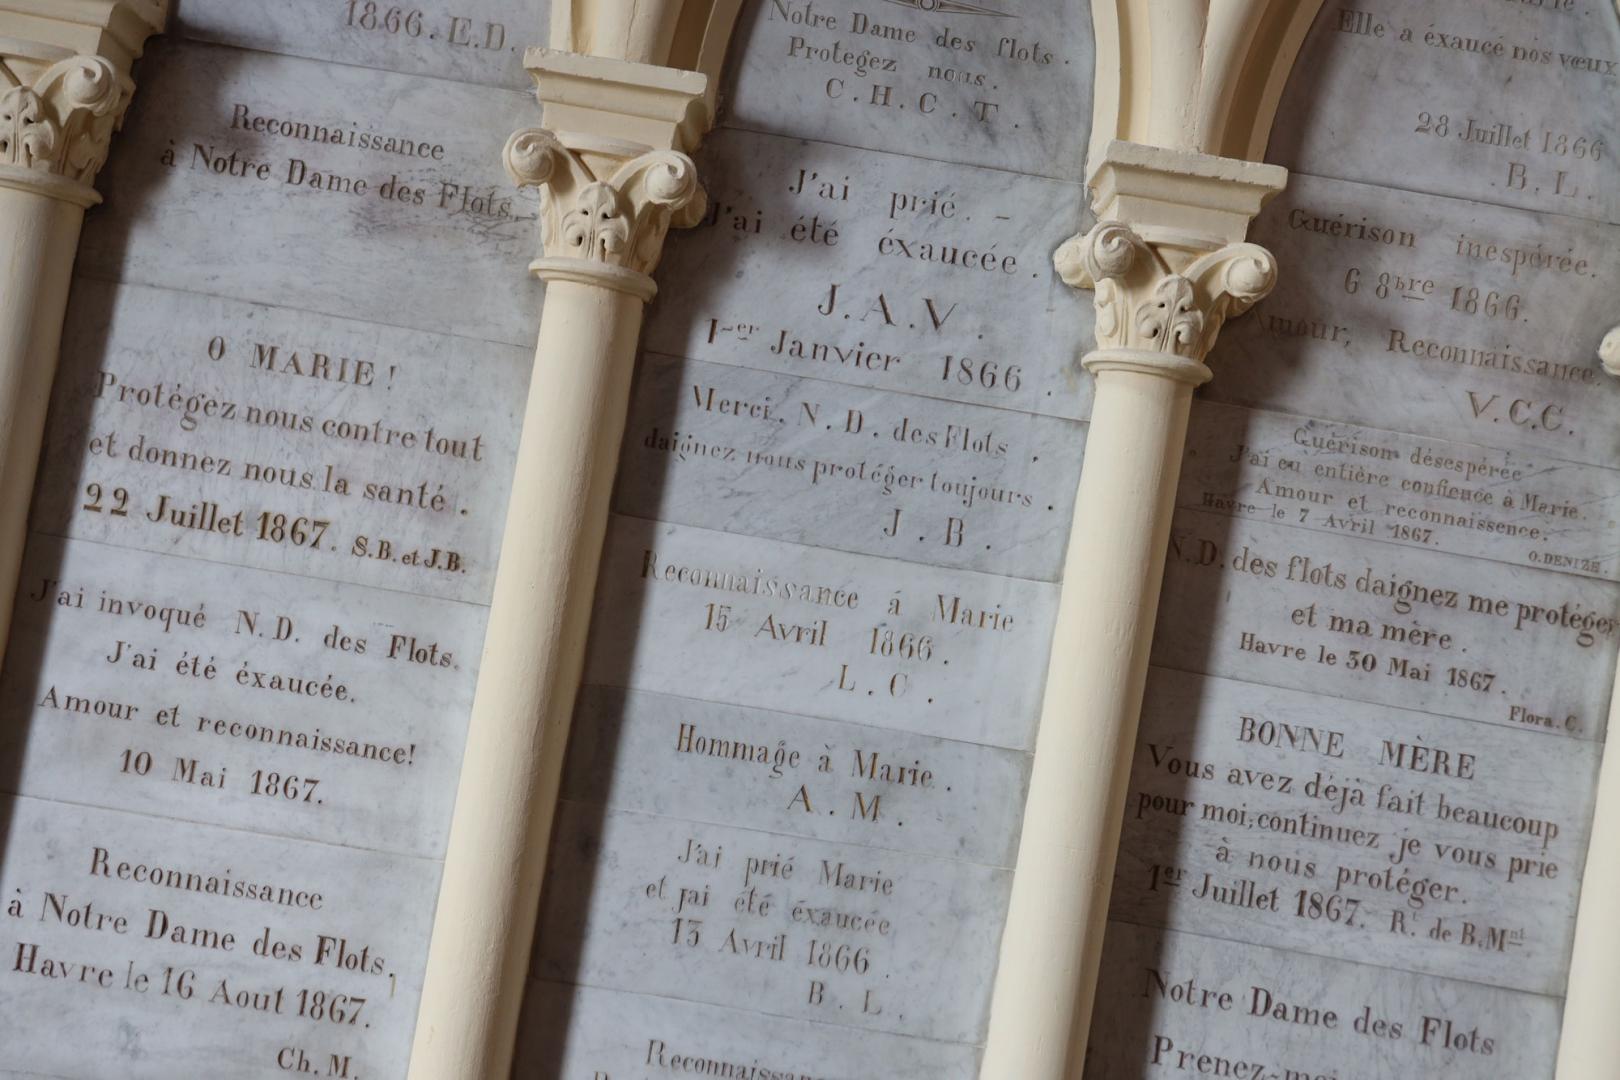 1866. E.D.
Reconnaissance
à Notre Dame des Flots.
O MARIE !
Protégez nous contre tout
et donnez nous la santé .
22 Juillet 1867. S.B. et J.B.
J'ai invoqué N. D. des Flots.
J'ai été éxaucée.
Amour et reconnaissance!
10 Mai 1867.
Reconnaissance
à Notre Dame des Flots,
Havre le 16 Aout 1867.
Ch. M.
Notre Dame des flots .
Protegez nous .
C . H . C . T .
J'ai prié . -
J'ai été éxaucée .
J . A . V .
1er Janvier 1866 .
Merci, N. D. des Flots ,
daignez nous protéger toujours .
J . B .
Reconnaissance á Marie
15 Avril 1866 .
L . C .
Hommage à Marie .
A . M .
J'ai prié Marie
et jai été éxaucée
13 Avril 1866 .
B . L .
Reconnaissance
Elle a éxaucé nos vœux
28 Juillet 1866
B . L .
Guérison inespérée.
6 8bre 1866.
Amour, Reconnaissance.
V.C.C.
Guérison désespérée
J'ai eu entière confience à Marie.
Amour et reconnaissence.
Havre le 7 Avril 1867.
O.DENIZE.
N.D. des flots daignez me protéger
et ma mère .
Havre le 30 Mai 1867 .
Flora . C .
BONNE MÈRE
Vous avez déjà fait beaucoup
pour moi, continuez je vous prie
à nous protéger.
1er Juillet 1867. Rt. de B.Mnt
Notre Dame des Flots
Prenez-moi